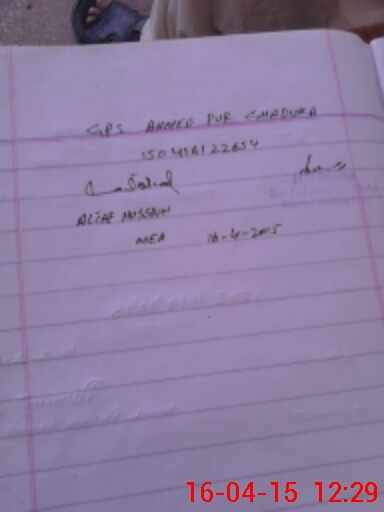 GPS AHMED PUR CHADURA
150416122654
ALTAF HUSSAIN
MEA 16-4-2015
16-04-15 12:29